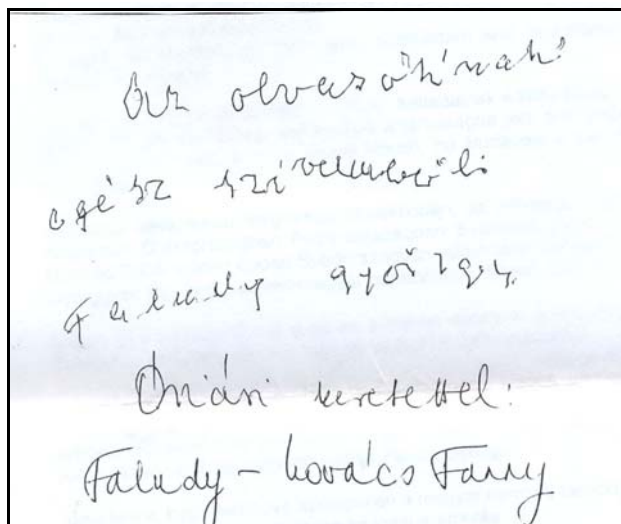 Az olvasóknak:
egész szívemből:
Faludy György,
Óriási szeretettel:
Faludy - Kovács Fanny